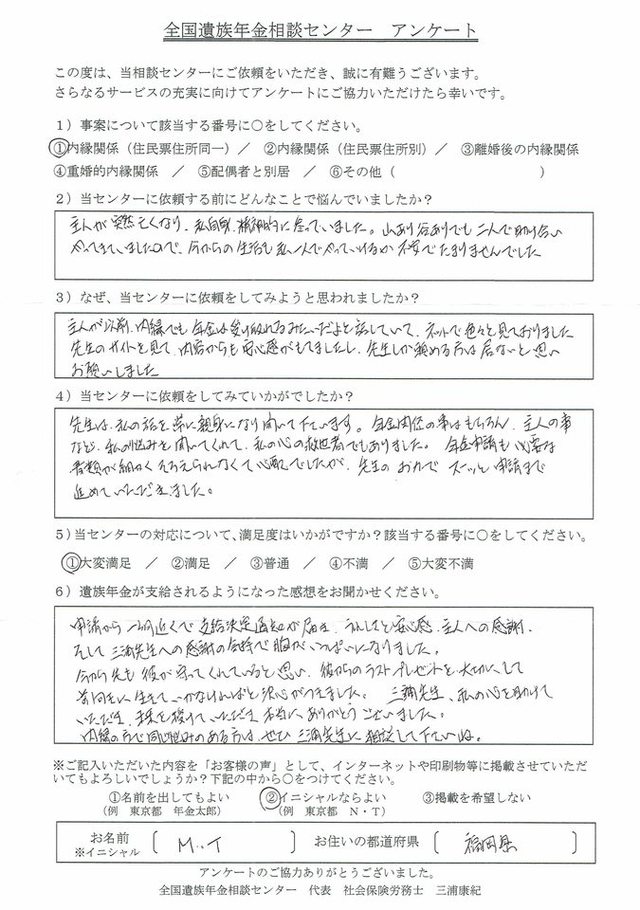 全国遺族年金相談センター　アンケート
この度は、当相談センターにご依頼をいただき、誠に有難うございます。
さらなるサービスの充実に向けてアンケートにご協力いただけたら幸いです。
1）事案について該当する番号に○をしてください。
①内縁関係（住民票住所同一）／　②内縁関係（住民票住所別）／　③離婚後の内縁関係
④重婚的内縁関係　／　⑤配偶者と別居　／　⑥その他（　　　　　　　　　　）
2）当センターに依頼する前にどんなことで悩んでいましたか？
主人が突然亡くなり、私自身、精神的に参っていました。山あり谷ありでも二人で助け合い
やってきていましたので、今からの生活も私一人でやっていけるか不安でたまりませんでした
3）なぜ、当センターに依頼をしてみようと思われましたか？
主人が以前、内縁でも年金は受け取れるみたいだよと話していて、ネットで色々と見ておりました
先生のサイトを見て、内容からも安心感がもてましたし、先生しか頼める方は居ないと思い
お願いしました
4）当センターに依頼をしてみていかがでしたか？
先生は、私の話を常に親身になり聞いて下さいます。年金関係の事はもちろん、主人の事
など、私の悩みを聞いてくれて、私の心の救世者でもありました。年金申請も必要な
書類が細かくそろえられなくて心配でしたが、先生のおかげで スーッと申請まで
進めていただきました。
5）当センターの対応について、満足度はいかがですか？該当する番号に○をしてください。
①大変満足　／　②満足　／　③普通　／　④不満　／　⑤大変不満
6）遺族年金が支給されるようになった感想をお聞かせください。
申請から 近くで 支給決定通知が届き、 安心感、主人への感謝、
そして 三浦先生への感謝の気持で胸がいっぱいになりました。
今から先も 彼が守ってくれていると思い、彼からのラストプレゼントを大切にして
前向きに生きていかなければと決心ができました。 三浦先生、私の心を助けて
いただき、 授けていただき 本当に、ありがとうございました。
内縁の方で同じ悩みのある方は、ぜひ 三浦先生に相談して下さいね。
※ご記入いただいた内容を「お客様の声」として、インターネットや印刷物等に掲載させていただ
いてもよろしいでしょうか？下記の中から○をつけてください。
①名前を出してもよい　②イニシャルならよい　③掲載を希望しない
（例　東京都　年金太郎）　（例　東京都　N・T）
お名前　M..T　お住いの都道府県　福岡県
※イニシャル
アンケートのご協力ありがとうございました。
全国遺族年金相談センター　代表　社会保険労務士　三浦康紀